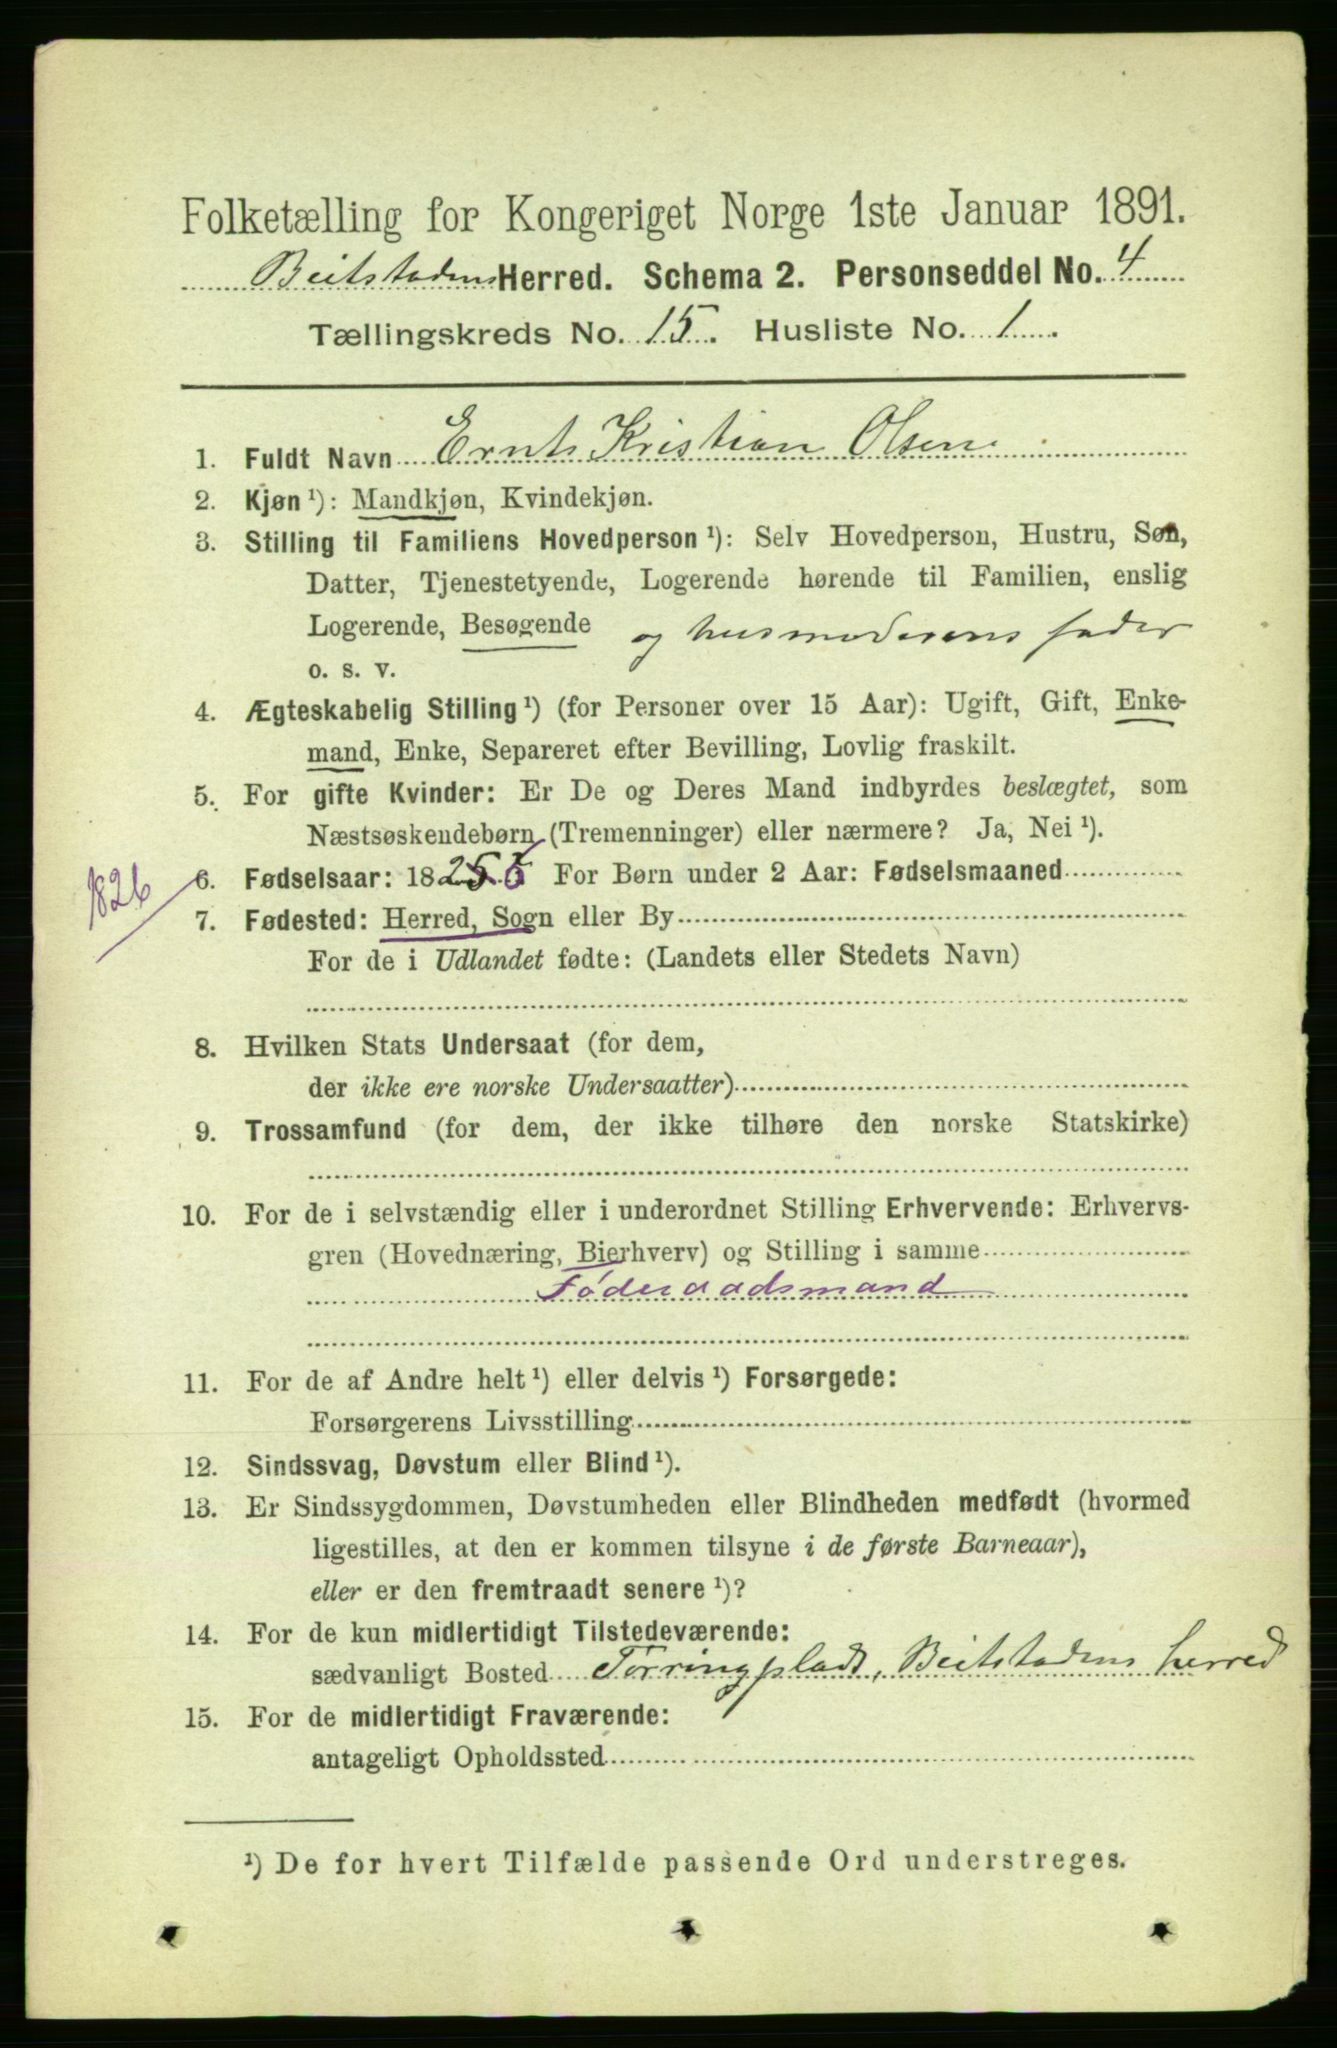 Folketælling for Kongeriget Norge 1ste Januar 1891.
Beitstadens Herred. Schema 2. Personseddel No. 4
Tællingskreds No. 15. Husliste No. 1.
1. Fuldt Navn Ernts Kristian Olsen
2. Kjøn ¹): Mandkjøn, Kvindekjøn.
3. Stilling til Familiens Hovedperson ¹): Selv Hovedperson, Hustru, Søn,
Datter, Tjenestetyende, Logerende hørende til Familien, enslig
Logerende, Besøgende og husmoderens fader
o. s. v.
4. Ægteskabelig Stilling ¹) (for Personer over 15 Aar): Ugift, Gift, Enke-
mand, Enke, Separeret efter Bevilling, Lovlig fraskilt.
5. For gifte Kvinder: Er De og Deres Mand indbyrdes beslægtet, som
Næstsøskendebørn (Tremenninger) eller nærmere? Ja, Nei ¹).
1826
6. Fødselsaar: 1825 For Børn under 2 Aar: Fødselsmaaned
7. Fødested: Herred, Sogn eller By
For de i Udlandet fødte: (Landets eller Stedets Navn)
8. Hvilken Stats Undersaat (for dem,
der ikke ere norske Undersaatter)
9. Trossamfund (for dem, der ikke tilhøre den norske Statskirke)
10. For de i selvstændig eller i underordnet Stilling Erhvervende: Erhvervs-
gren (Hovednæring, Bierhverv) og Stilling i samme
Føderaadsmand
11. For de af Andre helt ¹) eller delvis ¹) Forsørgede:
Forsørgerens Livsstilling
12. Sindssvag, Døvstum eller Blind ¹).
13. Er Sindssygdommen, Døvstumheden eller Blindheden medfødt (hvormed
ligestilles, at den er kommen tilsyne i de første Barneaar),
eller er den fremtraadt senere ¹)?
14. For de kun midlertidigt Tilstedeværende:
sædvanligt Bosted Tørringplads, Beitstadens herred
15. For de midlertidigt Fraværende:
antageligt Opholdssted
¹) De for hvert Tilfælde passende Ord understreges.